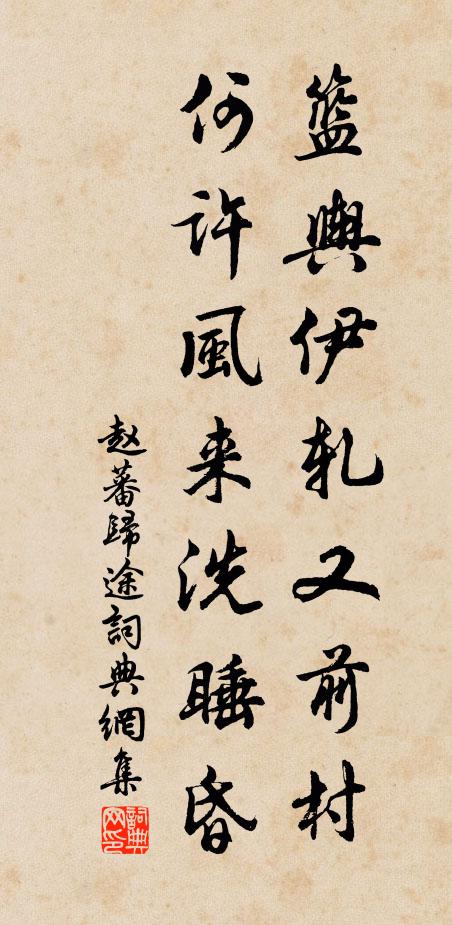 籃輿伊軋又前村
何許風来洗睡昏
赵蕃歸途詞典網集
詞典网印